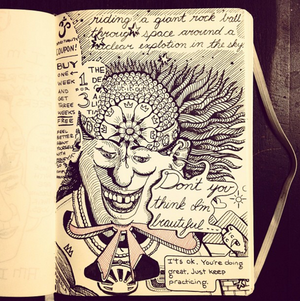 riding a giant rock ball
through space around a
nuclear explotion in the sky
COUPON!
BUY
ONE
WEEK
AND
GET
THREE
WEEKS
FREE
1
FOR
3
THE
FEEL
BETTER
ABOUT
Don't you
think I'm
beautiful
It's ok. You're doing
great. Just keep
practicing.